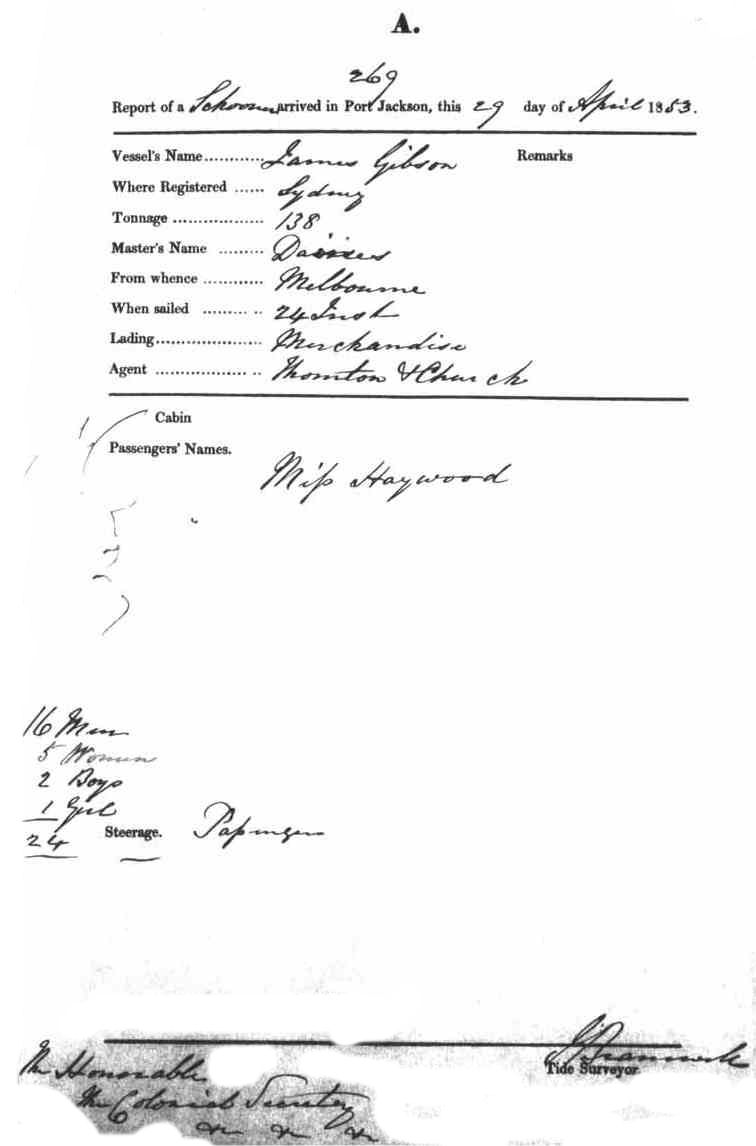 A.
269
Report of a Schooner arrived in Port Jackson, this 29 day of April 1853.
Vessel's Name............ James Gibson Remarks
Where Registered ...... Sydney
Tonnage .................. 138
Master's Name .........
From whence ............ Melbourne
When sailed ......... .. 24 Inst
Lading..................... Merchandise
Agent .................. .. Thornton & Church
Cabin
Passengers' Names.
Miss Haywood
16 Men
5 Women
2 Boys
1 Girl
24 Steerage. Passengers
Tide Surveyor
The Honorable
The Colonial Secretary